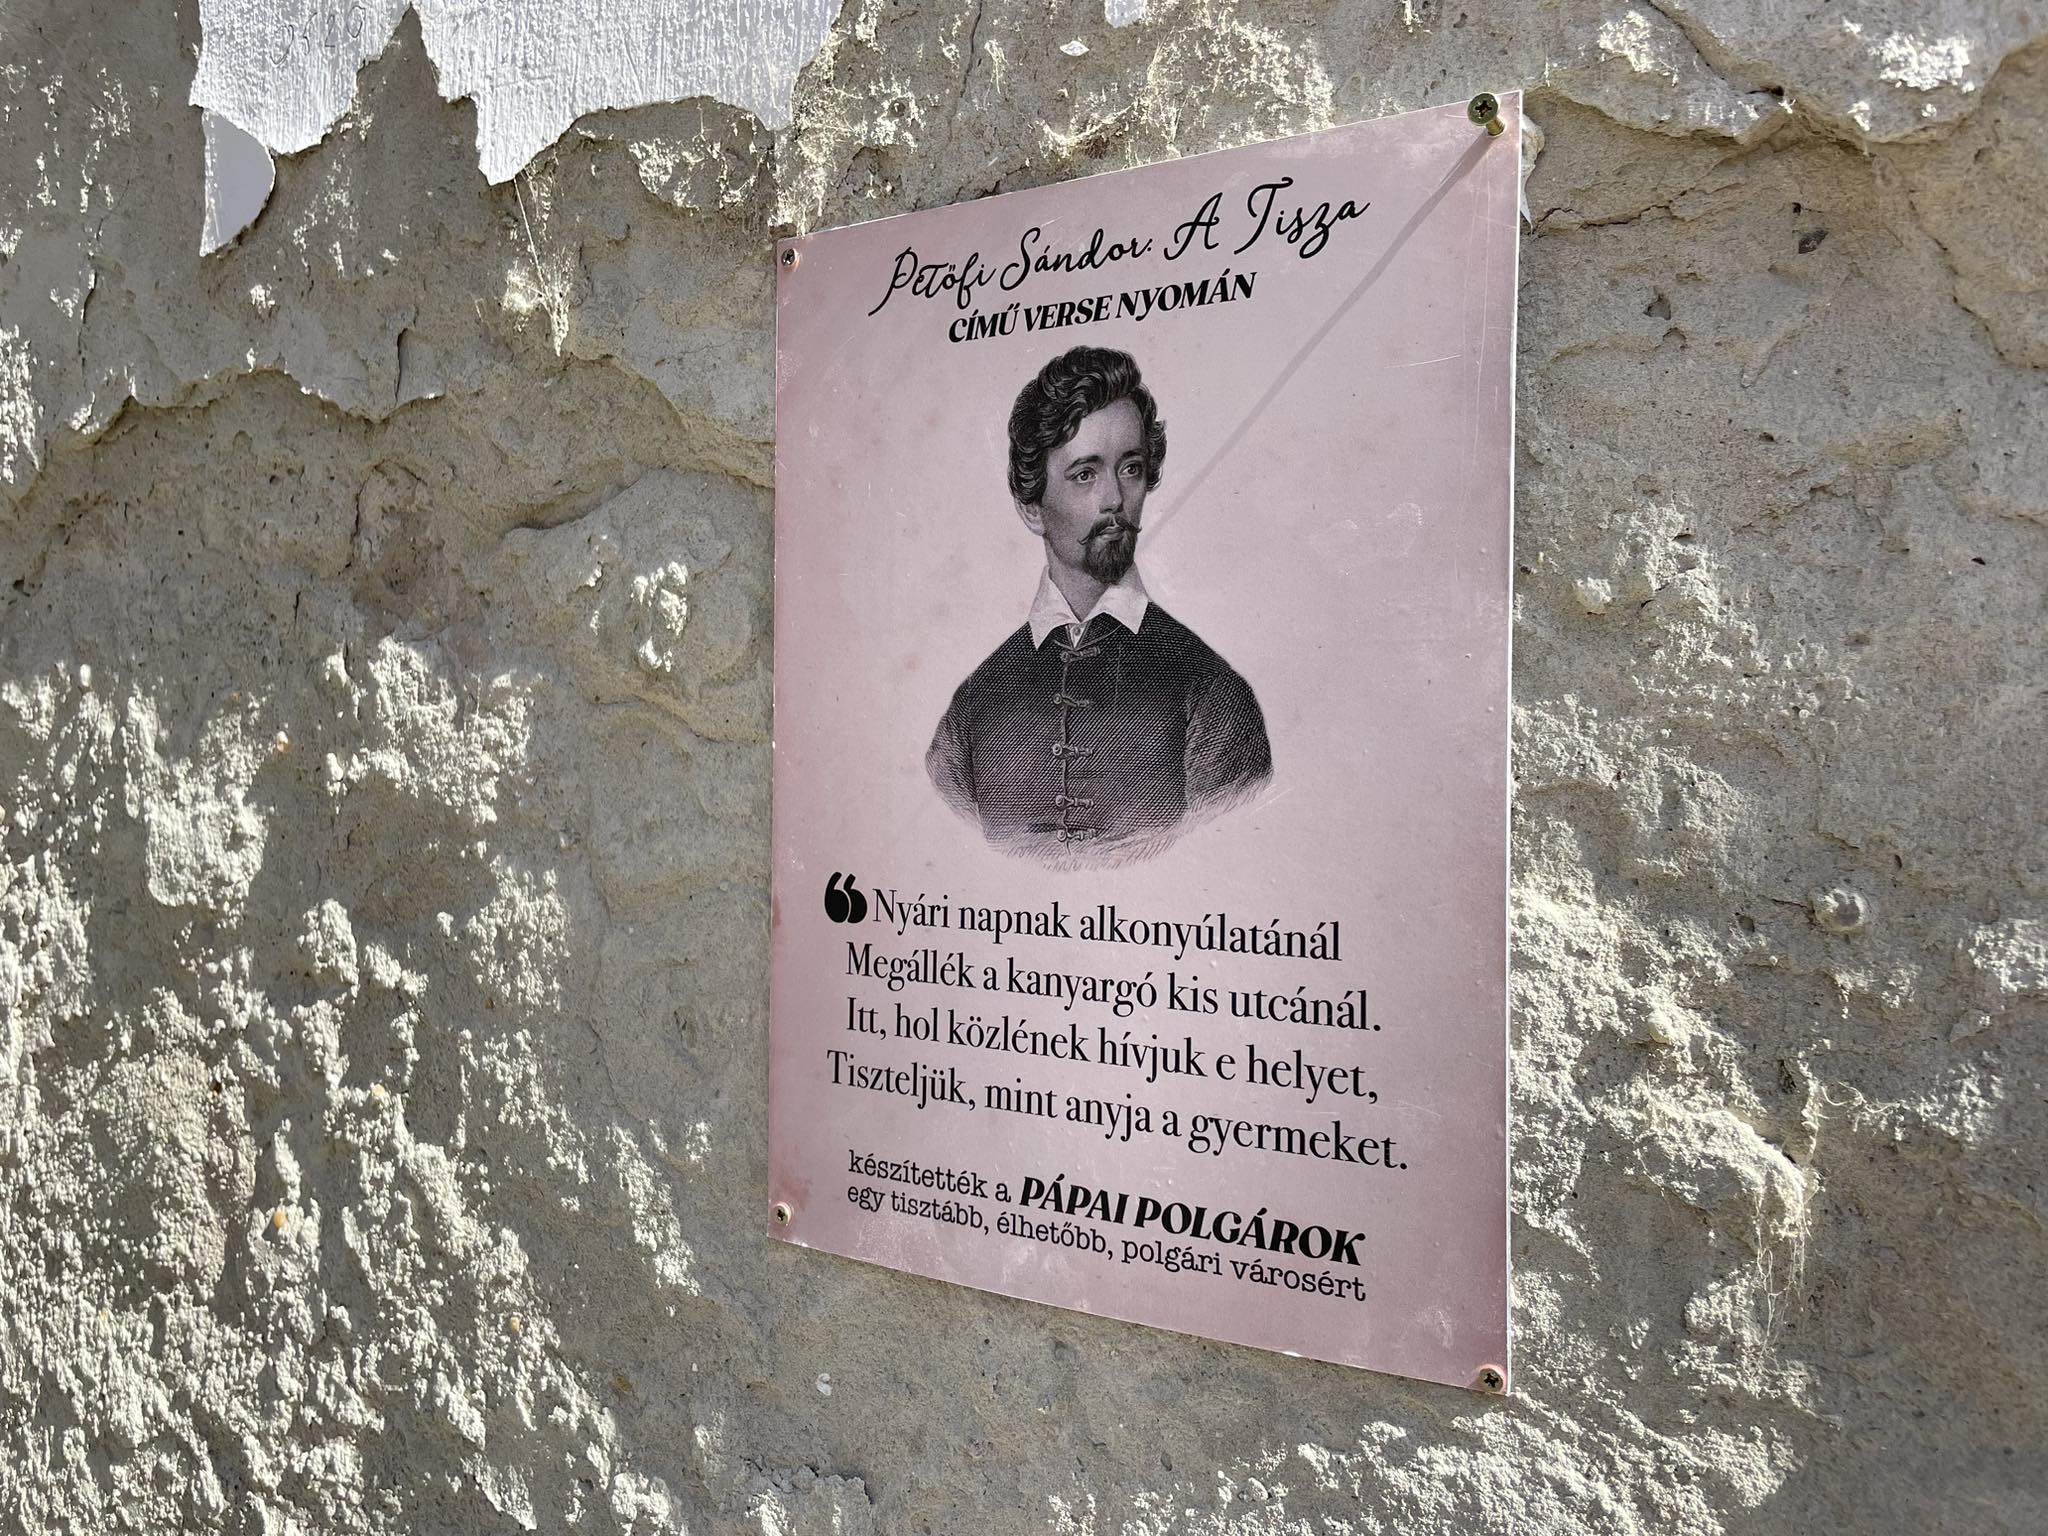 Petőfi Sándor: A Tisza
CÍMŰ VERSE NYOMÁN
❝Nyári napnak alkonyúlatánál
Megállék a kanyargó kis utcánál.
Itt, hol közlének hívjuk e helyet,
Tiszteljük, mint anyja a gyermeket.
készítették a PÁPAI POLGÁROK
egy tisztább, élhetőbb, polgári városért